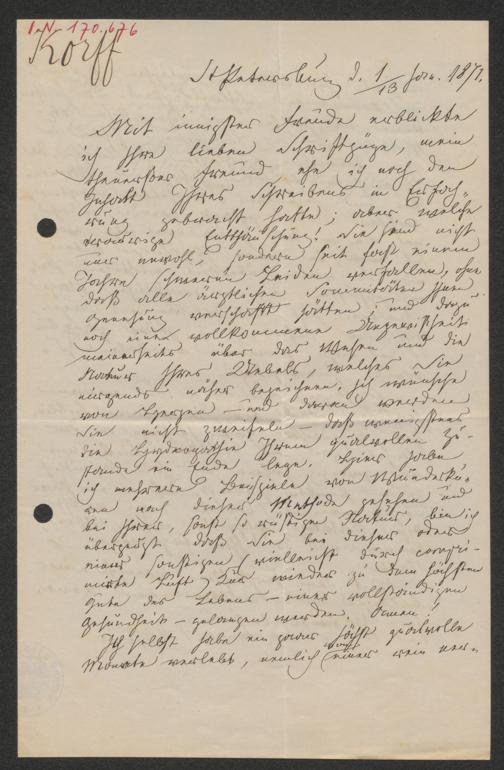 I.N. 170.676
Korff
St. Petersburg d. 1/13 Jan. 1871.
Mit innigster Freude erblickte
ich Ihre lieben Schriftzüge, mein
theuerster Freund ehe ich noch den
Inhalt Ihres Schreibens in Erfah-
rung gebracht hatte; aber welche
traurige Enttäuschung! Sie sind nicht
nur unwohl, sondern seit fast einem
Jahre schweren Leiden verfallen, ohne
daß alle ärztlichen Sommitäten Ihnen
Genesung verschafft hätten; und dazu
noch eine vollkommene Ungewißheit
meinerseits über das Wesen und die
Natur Ihres Uebels, welches Sie
nirgends näher bezeichnen. Ich wünsche
von Herzen – und daran werden
Sie nicht zweifeln – daß wenigstens
die Hydropathie Ihrem qualvollen Zu-
stande ein Ende lege. Hier habe
ich mehrere Beispiele von Wunderku-
ren nach dieser Methode gesehen und
bei Ihrer, sonst so rüstigen Natur, bin ich
überzeugt daß Sie bei dieser oder
einer sonstigen (vielleicht durch compri-
mirte Luft) Kur wieder zu dem höchsten
Gute des Lebens – einer vollständigen
Gesundheit – gelangen werden. Amen!
Ich selbst habe ein paar höchst qualvolle
Monate verlebt, nemlich einer rein ner-